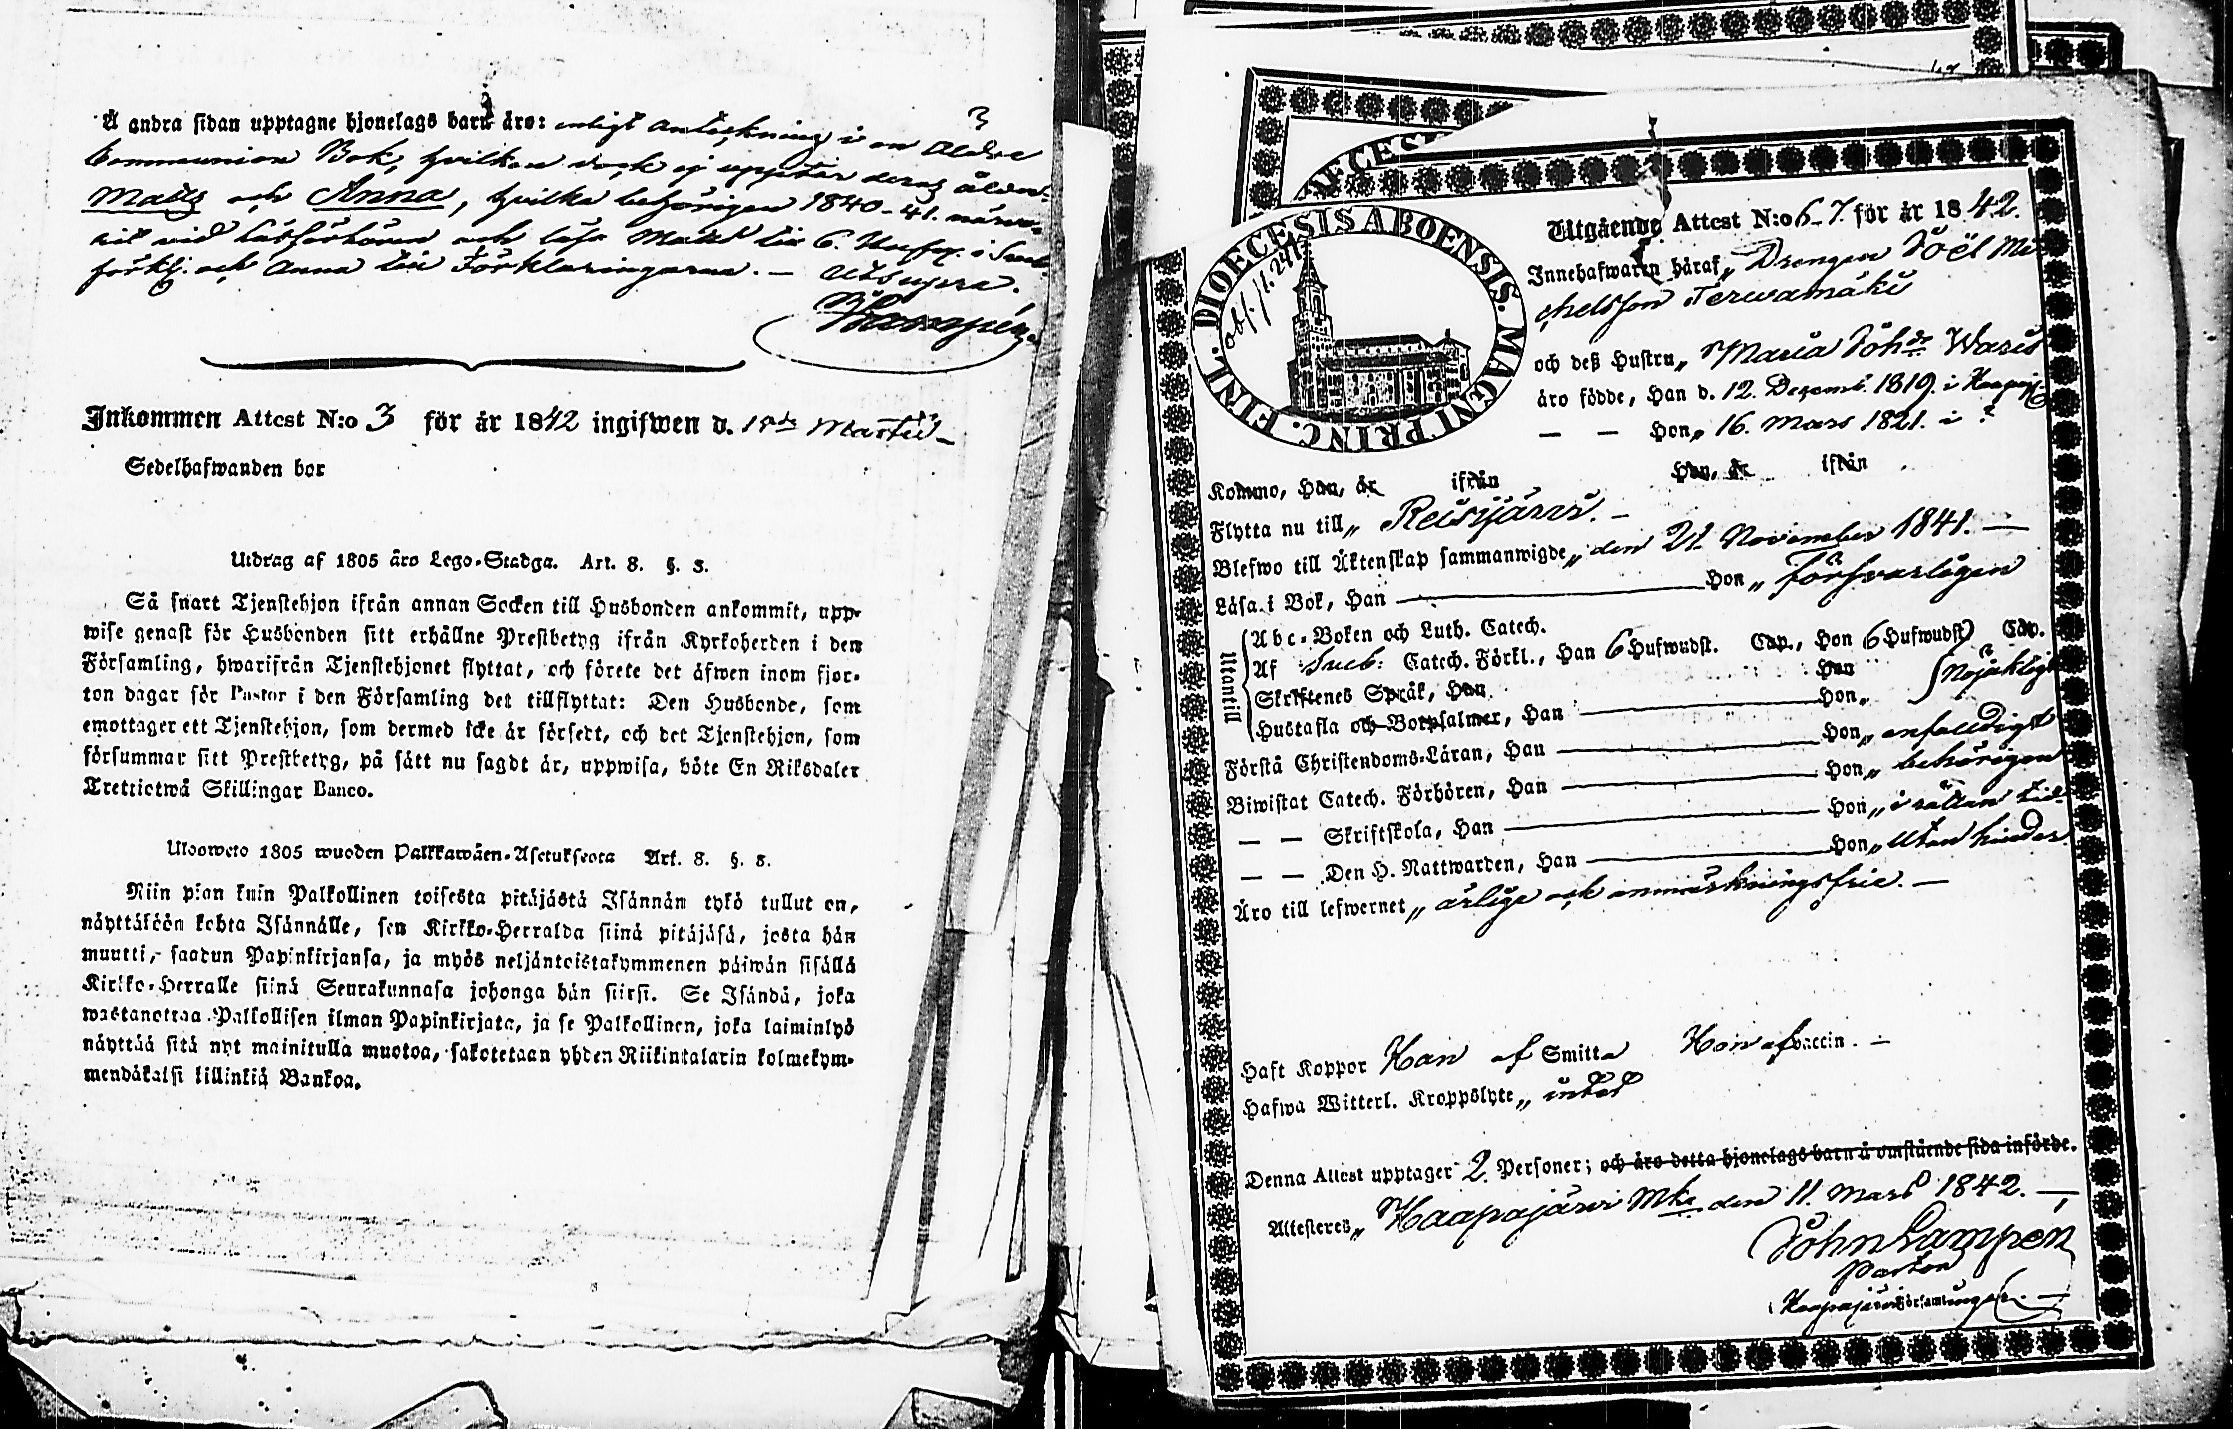 3
Å andra sidan upptagne hjonelags barn äro: enligt anteckning i en äldre
Communion Bok, hvilken dock ej upptar deras ålder.
Matts och Anna, hvilka behörigen 1840-41. närva-
rit vid Läsförhören och läsa Matts till 6. Hufvz. i Sveb.
förkl. och Anna till Förklaringarna. — Utsupra.
Lampén
Inkommen Attest N:o 3 för år 1842 ingifwen d. 18de Martii —
Sedelhafwanden bor
Utdrag af 1805 års Lego-Stadga. Art. 8. §. 3.
Så snart Tjenstehjon ifrån annan Socken till Husbonden ankommit, upp-
wise genast för Husbonden sitt erhållne Prestbetyg ifrån Kyrkoherden i den
Församling, hwarifrån Tjenstehjonet flyttat, och förete det äfwen inom fjor-
ton dagar för Pastor i den Församling det tillflyttat: Den Husbonde, som
emottager ett Tjenstehjon, som dermed icke är försedt, och det Tjenstehjon, som
försummar sitt Prestbetyg, på sätt nu sagdt är, uppwisa, böte En Riksdaler
Trettiotwå Skillingar Banco.
Ulosweto 1805 wuoden Palkkawäen-Asetuksesta Art. 8. §. 3.
Niin pian kuin Palkollinen toisesta pitäjästä Isännän tykö tullut on,
näyttäköön kohta Isännälle, sen Kirkko-Herralda siinä pitäjäsä, josta hän
muutti, saadun Papinkirjansa, ja myös neljäntoistakymmenen päiwän sisällä
Kirkko-Herralle siinä Seurakunnasa johonga hän siirsi. Se Isändä, joka
wastanottaa Palkollisen ilman Papinkirjata, ja se Palkollinen, joka laiminlyö
näyttää sitä nyt mainitulla muotoa, sakotetaan yhden Riikintalarin kolmekym-
mendäkaksi killinkiä Bankoa.
DIOECESIS ABOENSIS. MAGNI PRINC. FINL.
Utgående Attest N:o 67. för år 1842.
Innehafwaren häraf „ Drengen Joël Mi-
chelsson Terwamäki
och deß Hustru „ Maria Johsdr Waris
äro födde, Han d. 12. Decemb. 1819. i Haapaj.
— — Hon „ 16. Mars 1821. i ?
Kommo, Han, är ifrån Hon, är ifrån
Flytta nu till „ Reisjärvi. —
Blefwo till Äktenskap sammanwigde „ den 21. November 1841. —
Läsa i Bok, Han — Hon „ försvarligen
Utontill
Abc-Boken och Luth. Catech.
Af Sveb: Catech. Förkl., Han 6 Hufwudst. Cap., Hon 6 Hufwudst. Cap.
Skriftenes Språk, Han Hon Nöjaktigt
Hustafla och Botpsalmer, Han — Hon „
Förstå Christendoms-Läran, Han — Hon „ enfaldigt
Biwistat Catech. Förhören, Han — Hon „ behörigen
— — Skriftskola, Han — Hon „ i rättan tid
— — Den H. Nattwarden, Han — Hon „ Utan hinder
Äro till lefwernet „ ärlige och anmärkningsfrie. —
Haft Koppor Han af Smitta Hon af vaccin. —
Hafwa Witterl. Kroppslyte „ intet
Denna Attest upptager 2. Personer; och äro detta hjonelags barn å omstående sida införde.
Attesteres „ Haapajärvi Mka den 11. Mars 1842. —
Joh Lampén
Pastor
Haapajärvi Församlingar. —